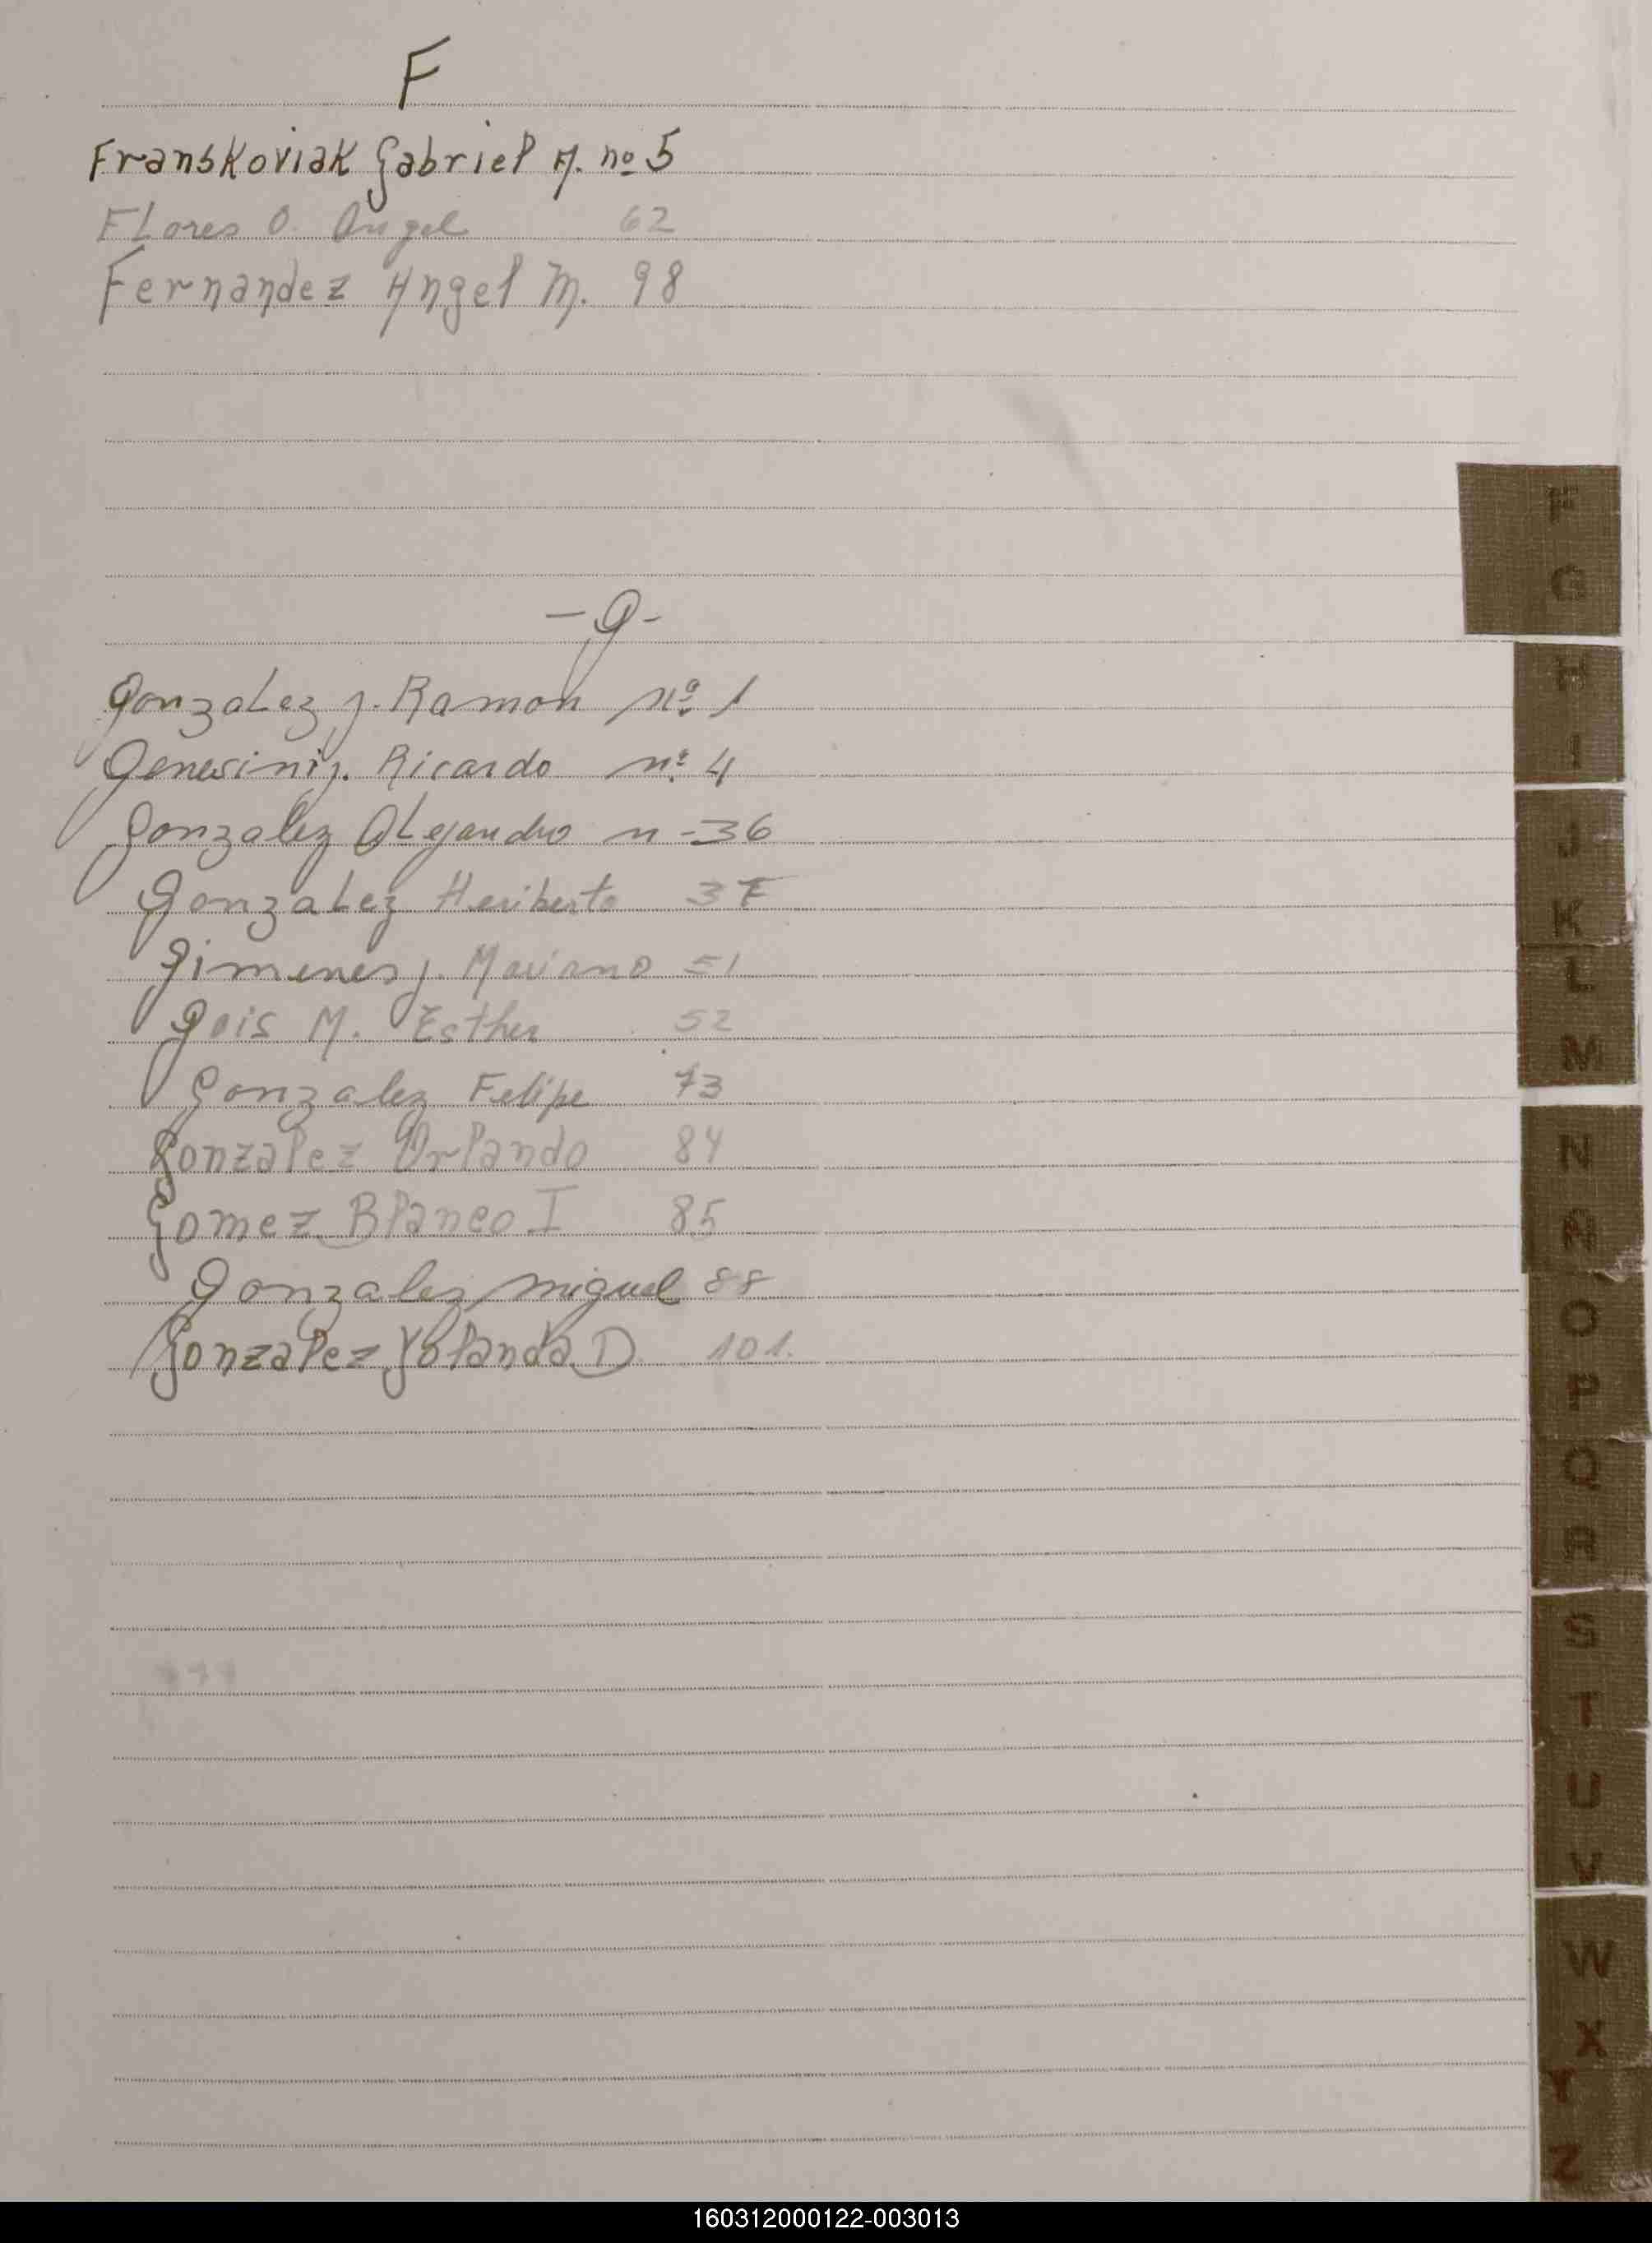 F
Franskoviak Gabriel A. no 5
FLores O. Angel 62
Fernandez Angel M. 98
- G -
GonzaLez J. Ramon nº 1
Genesini J. Ricardo nº 4
Gonzalez ALejandro n - 36
GonzaLez Heriberto 37
Gimenes J. Mariano 51
Gois M. Esther 52
Gonzalez Felipe 73
Gonzalez Orlando 84
Gomez Blanco I 85
Gonzalez miguel 88
Gonzalez Yolanda D. 101.
F
G
H
I
J
K
L
M
N
Ñ
O
P
Q
R
S
T
U
V
W
X
Y
Z
160312000122-003013